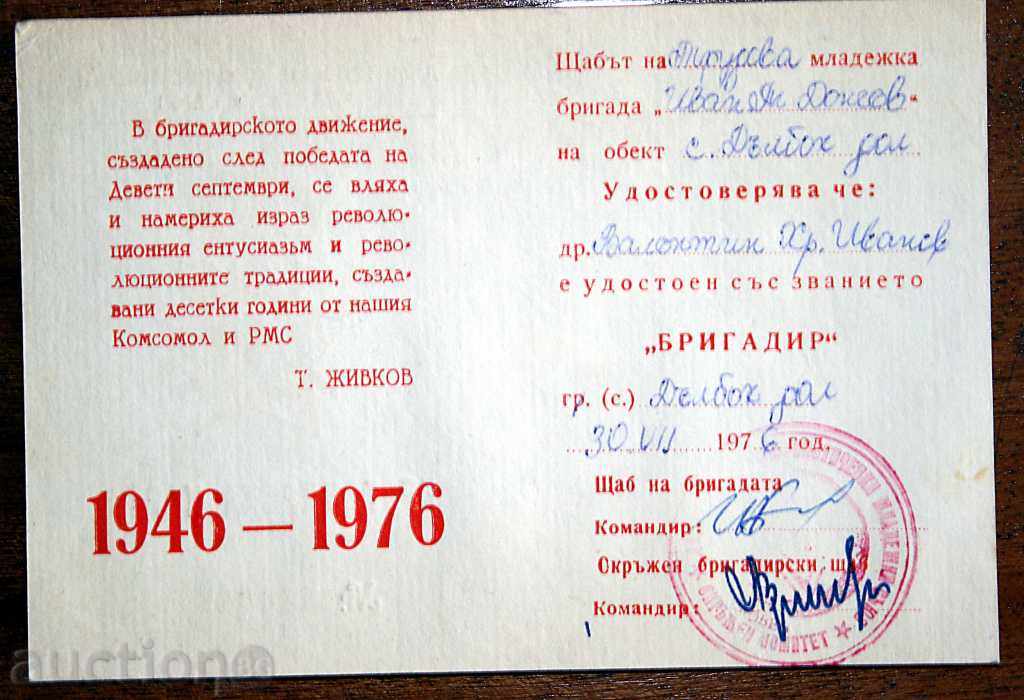 В бригадирското движение,
създадено след победата на
Девети септември, се вляха
и намериха израз револю-
ционния ентусиазъм и рево-
люционните традиции, създа-
вани десетки години от нашия
Комсомол и РМС
Т. ЖИВКОВ
1946 — 1976
Щабът на младежка
бригада „Иван Донев“
на обект с. Дълбок дол
Удостоверява че:
др. Валентин Хр. Иванов
е удостоен със званието
„БРИГАДИР“
гр. (с.) Дълбок дол
30 VII 1976 год.
Щаб на бригадата
Командир:
Скръжен бригадирски щаб
Командир:
МЛАДЕЖКИ СЪЮЗ ★ ОКРЪЖЕН КОМИТЕТ ★
auction